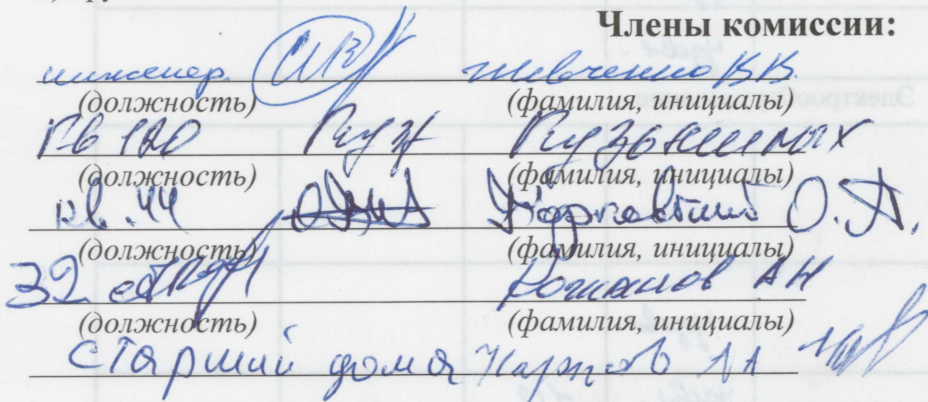 Члены комиссии:
инженер Шевченко В.В.
(должность) (фамилия, инициалы)
кв 120 Куз Кузьминых
(должность) (фамилия, инициалы)
кв. 44 О.А.
(должность) (фамилия, инициалы)
32 АН
(должность) (фамилия, инициалы)
Старший дома Карпов АА